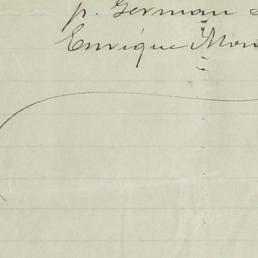 p. German
Enrique Mon